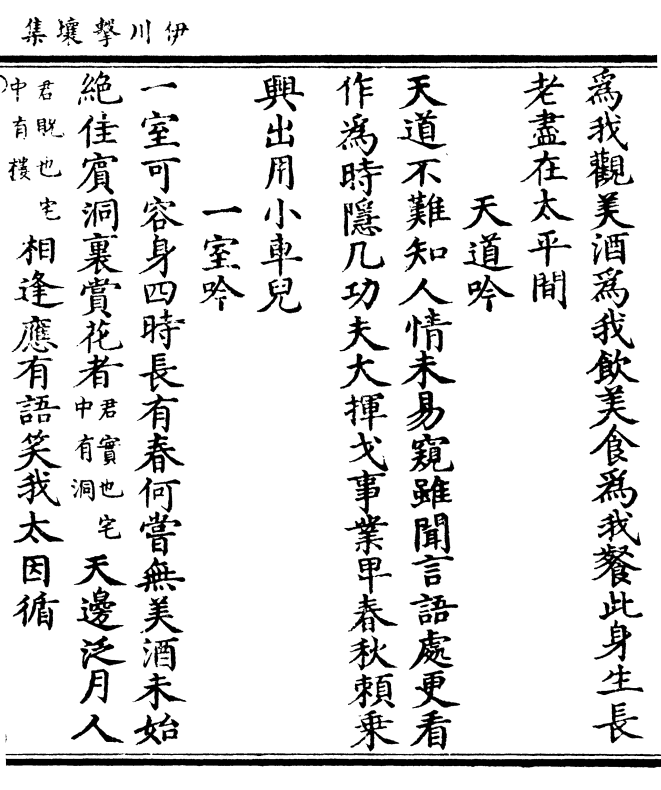 伊川擊壤集
爲我觀美酒爲我飲美食爲我餐此身生長
老盡在太平間
天道吟
天道不難知人情未易窺雖聞言語處更看
作爲時隱几功夫大揮戈事業卑春秋賴乗
興出用小車兒
一室吟
一室可容身四時長有春何嘗無美酒未始
絶佳賓洞裏賞花者君實也宅中有洞天邊泛月人
君貺也宅中有樓相逢應有語笑我太因循